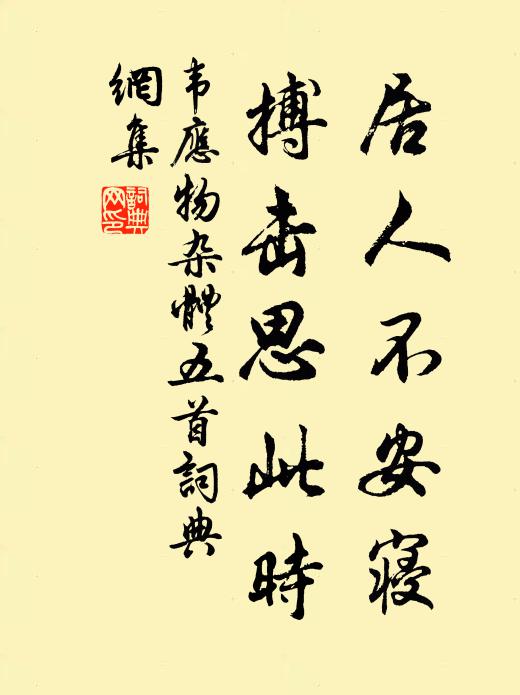 居人不安寝
搏击思此時
韦應物杂體五首詞典
網集
詞典網印